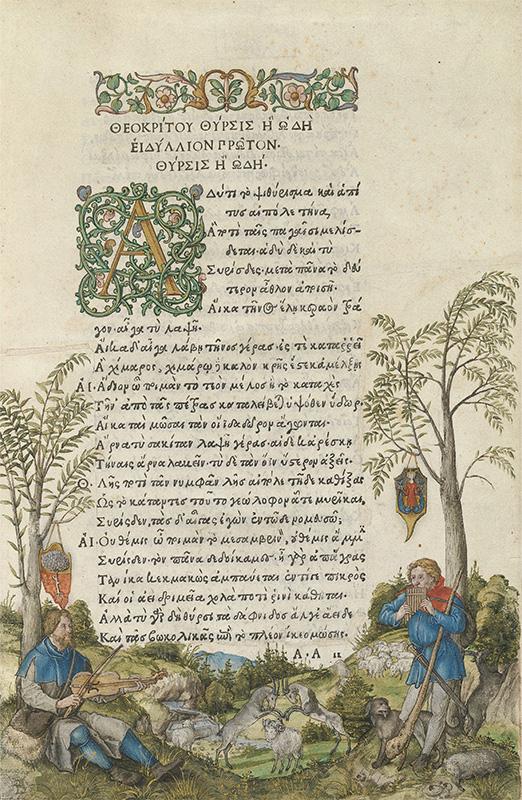 ΘΕΟΚΡΙΤΟΥ ΘΥΡΣΙΣ Ἢ ᾨΔΗ
ΕΙΔΥΛΛΙΟΝ ΠΡΩΤΟΝ.
ΘΥΡΣΙΣ Ἢ ᾨΔΗ.
Αδύ τι τὸ ψιθύρισμα καὶ ἁ πί
τυς αἰπόλε τήνα,
Ἃ ποτὶ ταῖς παγαῖσι μελίσ-
δεται· ἁδὺ δὲ καὶ τὺ
Συρίσδες· μετὰ πᾶνα τὸ δεύ
τερον ἆθλον ἀποισῇ.
Αἴκα τῆνος ἕλῃ κεραὸν τρά
γον, αἶγα τὺ λαψῇ.
Αἴκα δ' αἶγα λάβῃ τῆνος γέρας, ἐς τὲ καταρρεῖ
Ἁ χίμαρος, χιμάρω δὲ καλὸν κρῆς ἔστε κ' ἀμέλξῃς
ΑΙ. Ἅδιον ὦ ποιμὰν τὸ τεὸν μέλος ἢ τὸ καταχὲς
Τῆν' ἀπὸ τᾶς πέτρας καταλείβεται ὑψόθεν ὕδωρ.
Αἴκα ταὶ μῶσαι τὰν οἴιδα δῶρον ἄγωνται.
Ἄρνα τὺ σακίταν λαψῇ γέρας. αἰ δέ κ' ἀρέσκῃ
Τήναις ἄρνα λαβεῖν. τὺ δὲ τὰν ὄϊν ὕστερον ἀξεῖς.
Θ. Λῇς ποτὶ τᾶν νυμφᾶν λῇς αἰπόλε τῇδε καθίξας
Ὡς τὸ κάταντες τοῦτο γεώλοφον ᾇτε μυρῖκαι,
Συρίσδεν, τὰς δ' αἶγας ἐγὼν ἐν τῷδε νομευσῶ;
ΑΙ. Οὐ θέμις ὦ ποιμὰν τὸ μεσαμβρινὸν, οὐ θέμις ἄμμιν
Συρίσδεν. τὸν πᾶνα δεδοίκαμες. ἦ γὰρ ἀπ' ἄγρας
Τανίκα κεκμακὼς ἀμπαύεται ἐντί γε πικρὸς
Καί οἱ ἀεὶ δριμεῖα χολὰ ποτὶ ῥινὶ κάθηται.
Ἀλλὰ τὺ γὰρ δὴ θύρσι τὰ δάφνιδος ἄλγεα εἶδες
Καὶ τᾶς βωκολικᾶς ἐπὶ τὸ πλέον ἵκεο μώσης.
Α.Α ii